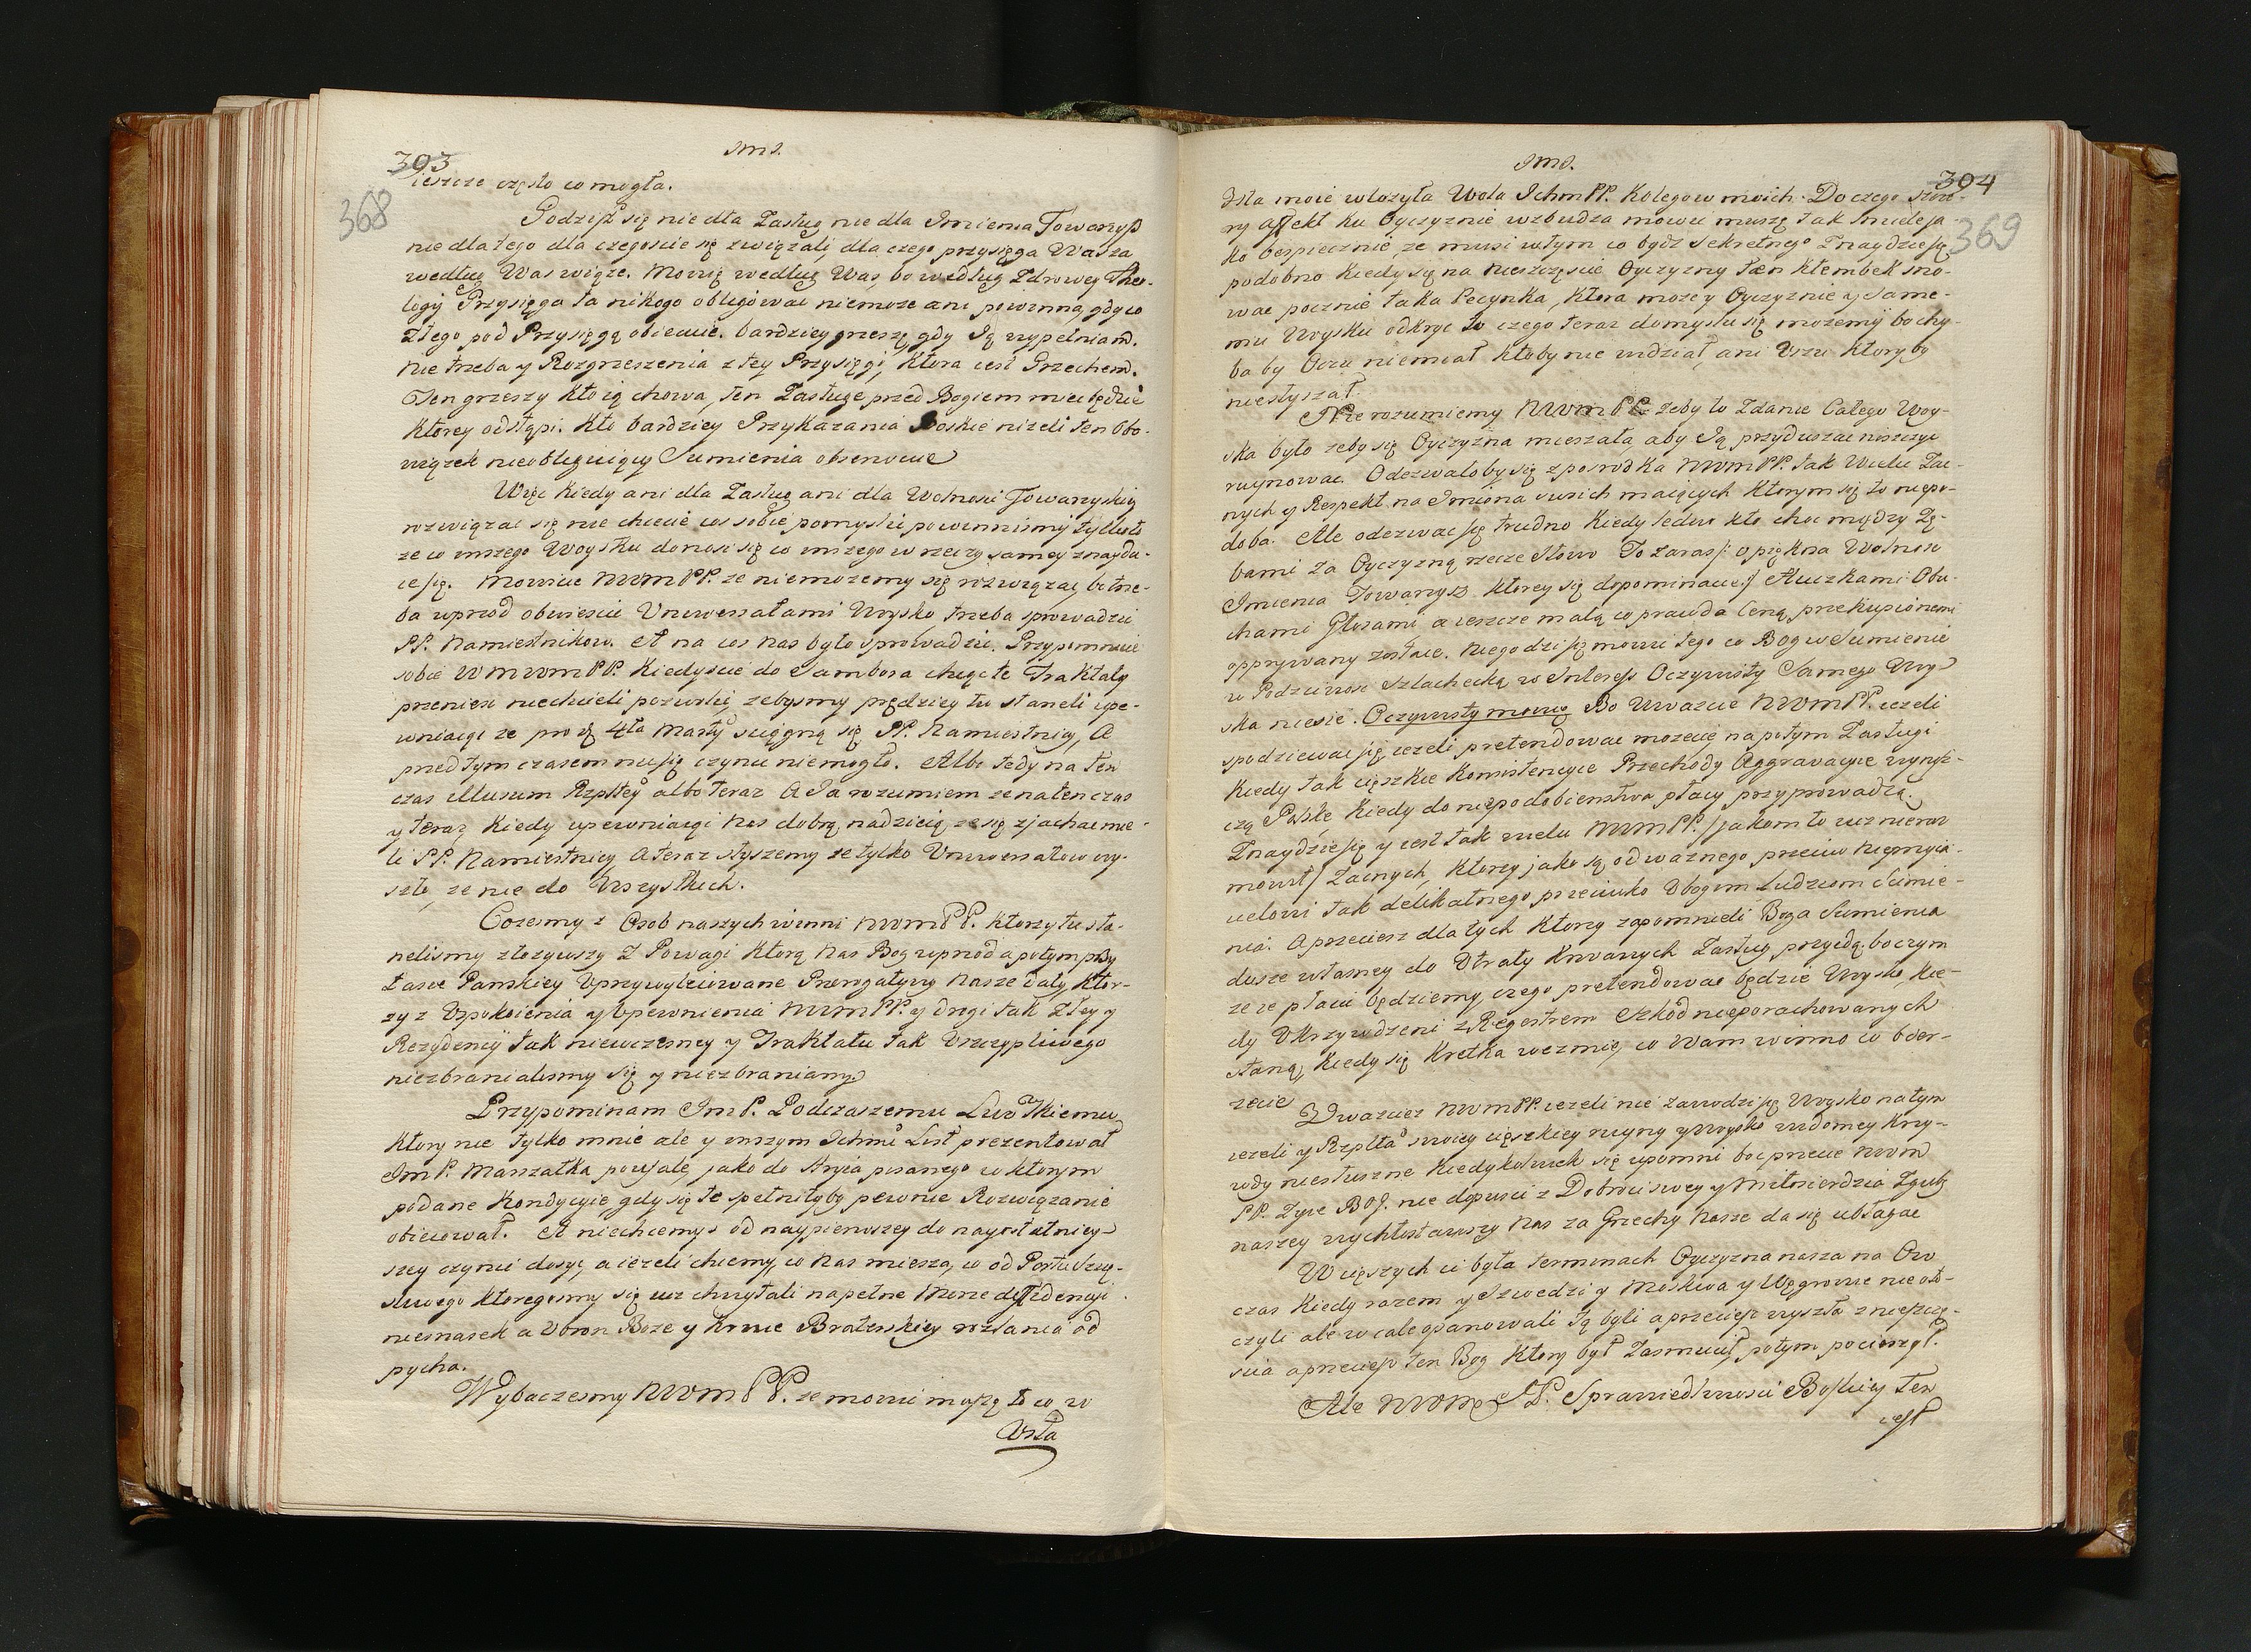 393
JmJ.
ieszcze często co mogła.
368
Godzisz się nie dla Zasług nie dla Imienia Towarzysz
nie dla tego dla czegoscie się związali, dla czego przysięga Wasza
według Was wiąże. Mowię według Was, bo według Zdrowey Theo-
logij Przysięga ta nikogo obligować niemoze ani powinna, gdy co
Złego pod Przysięgą obiecuie. bardziey grzeszę gdy Ją wypełniam.
Nie trzeba y Rozgrzeszenia z tey Przysięgi, Która iest Grzechem.
Ten grzeszy Kto ią chowa, ten Zasługę przed Bogiem miec będzie
Ktorey odstąpi. Kto bardziey Przykazania Boskie nizeli ten Obo-
wiązek nieobliguiący Sumienia obserwuie
Więc Kiedy ani dla Zasług ani dla Wolnosci Towarzyskiey
rozwiązac się nie chcecie cos sobie pomyslic powinnismy tylko to
ze co inszego Woysku donosi się co inszego w rzeczy samey znaydu-
ie się. Mowicie MWMPP. ze niemozemy się rozwiązac, bo trze-
ba wprzod obwiescic Uniwersałami Woysko, trzeba sprowadzic
PP. Namiestnikow. A na cos nas było sprowadzic. Przypomniec
sobie WMWMPP. Kiedyscie do Sambora chcąc te Traktaty
przeniesc niechcieli pozwolic, zebysmy prędziey tu staneli upe-
wniaiąc ze pro 4ta Marty sciągną się PP. Namiestnicy, A
przed tym czasem nic się czynic niemogło. Albo tedy na ten
czas illusum Rzpltey albo teraz A Ja rozumiem ze naten czas
y teraz Kiedy upewniaiąc nas dobrą nadzieią ze się zjachac mie-
li PP. Namiestnicy A teraz słyszemy ze tylko Uniwersałow wy-
szło, ze nie do Wszystkich.
Cozesmy z Osob naszych winni MWMPP. Ktorzy tu sta-
nelismy złozywszy z Powagi Ktorą nas Bog wprzod a potym przy
Łasce Panskiey Uprzywyleiowane Prerogatywy nasze dały, Kto-
rzy z Uspokoienia y Upewnienia MWMPP. y drogi tak Złey y
Rezydencyi tak niewczesney y Traktatu tak Uszczypliwego
niezbranialismy się y niezbraniamy.
Przypominam ImP. Podczaszemu Lwowskiemu
Ktory nie tylko mnie ale y inszym Ichmci List prezentował
ImP. Marszałka poufale, jako do Stryia pisanego w Ktorym
podane Kondycyie, gdy się te spełniłyby pewnie Rozwiązanie
obiecował. A niechcemys od naypierwszey do nayostatniey-
szey czynic dosyc, a iezeli chcemy, co nas miesza, co od Portu Szczę-
sliwego Ktoregosmy się iuz chwytali na pełne Morze deffidencyi
niesnasek a Uchron Boze y Krwie Braterskiey rozlania od
pycha.
Wybaczesmy MWMPP. ze mowic muszę to co w
Usta
JmJ.
394
369
Usta moie włozyła Wola IchmPP. Kolegow moich. Do czego szcze-
ry affekt Ku Oyczyznie wzbudza mowic muszę tak smiele ja-
ko bespiecznie, ze musi w tym co bydz sekretnego Znaydzie się
podobno Kiedy się na nieszczęscie Oyczyzny ten Kłembek sno-
wac pocznie taka Pecynka, Ktora moze y Oyczyznie y same-
mu Woysku odkryc to czego teraz domyslic się mozemy bo chy-
ba by Oczu niemiał Ktoby nie widział, ani Uszu Ktoryby
niesłyszał.
Nierozumiemy MWMPP. zeby to Zdanie Całego Woy-
ska było zeby się Oyczyzna mieszała, aby Ją przyduszac niszczyc
ruynowac. Odezwałoby się z posrodka MWMPP. tak Wielu Zac-
nych y Respekt na Imiona swoich maiących Ktorym się to niepo-
doba. Ale odezwac się trudno Kiedy Jedno Kto choc między Zę-
bami za Oyczyzną rzecze Słowo To zaras /: o piękna Wolnosc
Imienia Towarzysz. Ktorey się dopominacie:/ Kluczkami Obu-
chami Głosami, a ieszcze małą co prawda Ceną przekupionemi
opprymowany zostaie. Niegodzi się mowic tego co Bog w Sumienie
w Podzciwosc Szlachecką w Interess Oczywisty Samego Woy-
ska niesie. Oczywisty mowię Bo Uwazcie MWMPP. iezeli
spodziewac się iezeli pretendowac mozecie napotym Zasługi
Kiedy tak cięszkie Konsistencyie Przechody Aggrawacyie wynisz-
czą Polskę Kiedy do niepodobienstwa płacy przyprowadzą.
Znaydzie się y iest tak wielu MWMPP. /jakom to iuz nieraz
mowił/ Zacnych, Ktorzy jako są odwaznego przeciw Nieprzyia-
cielowi tak delikatnego przeciwko Ubogim Ludziom Sumie-
nia. A przeciesz dla tych Ktorzy zapomnieli Boga Sumienia
dusze własney do Utraty Krwawych Zasług przyidą, bo czym
ze ie płacic będziemy, czego pretendowac będzie Woysko, Kie-
dy Ukrzywdzeni z Regestrem Szkod nieporachowanych
staną, Kiedy się Kretka wezmie, co Wam winno co bier-
zecie
Uwazciez MWMPP. iezeli nie zawodzi się Woysko na tym
iezeli y Rzplta swoiey cięszkiey ruyny y Woysko widomey Krzy-
wdy niesłuszne Kiedykolwiek się upomni bo iprzecie MWM
PP. Zyie BOG. nie dopusci z Dobroci swey y Miłosierdzia Zguby
naszey wychłostawszy nas za Grzechy Nasze da się ubłagac
W cięszych ci była terminach Oyczyzna nasza na Ow
czas Kiedy razem y Szwedzi y Moskwa y Węgrowie nie oto-
czyli ale w cale opanowali Ją byli a przeciesz wyszła z nieszczę-
scia a przeciesz ten Bog Ktory był Zasmucił, potym pocieszył.
Ale MWMPP. Sprawiedliwosci Boskiey Ten
iest